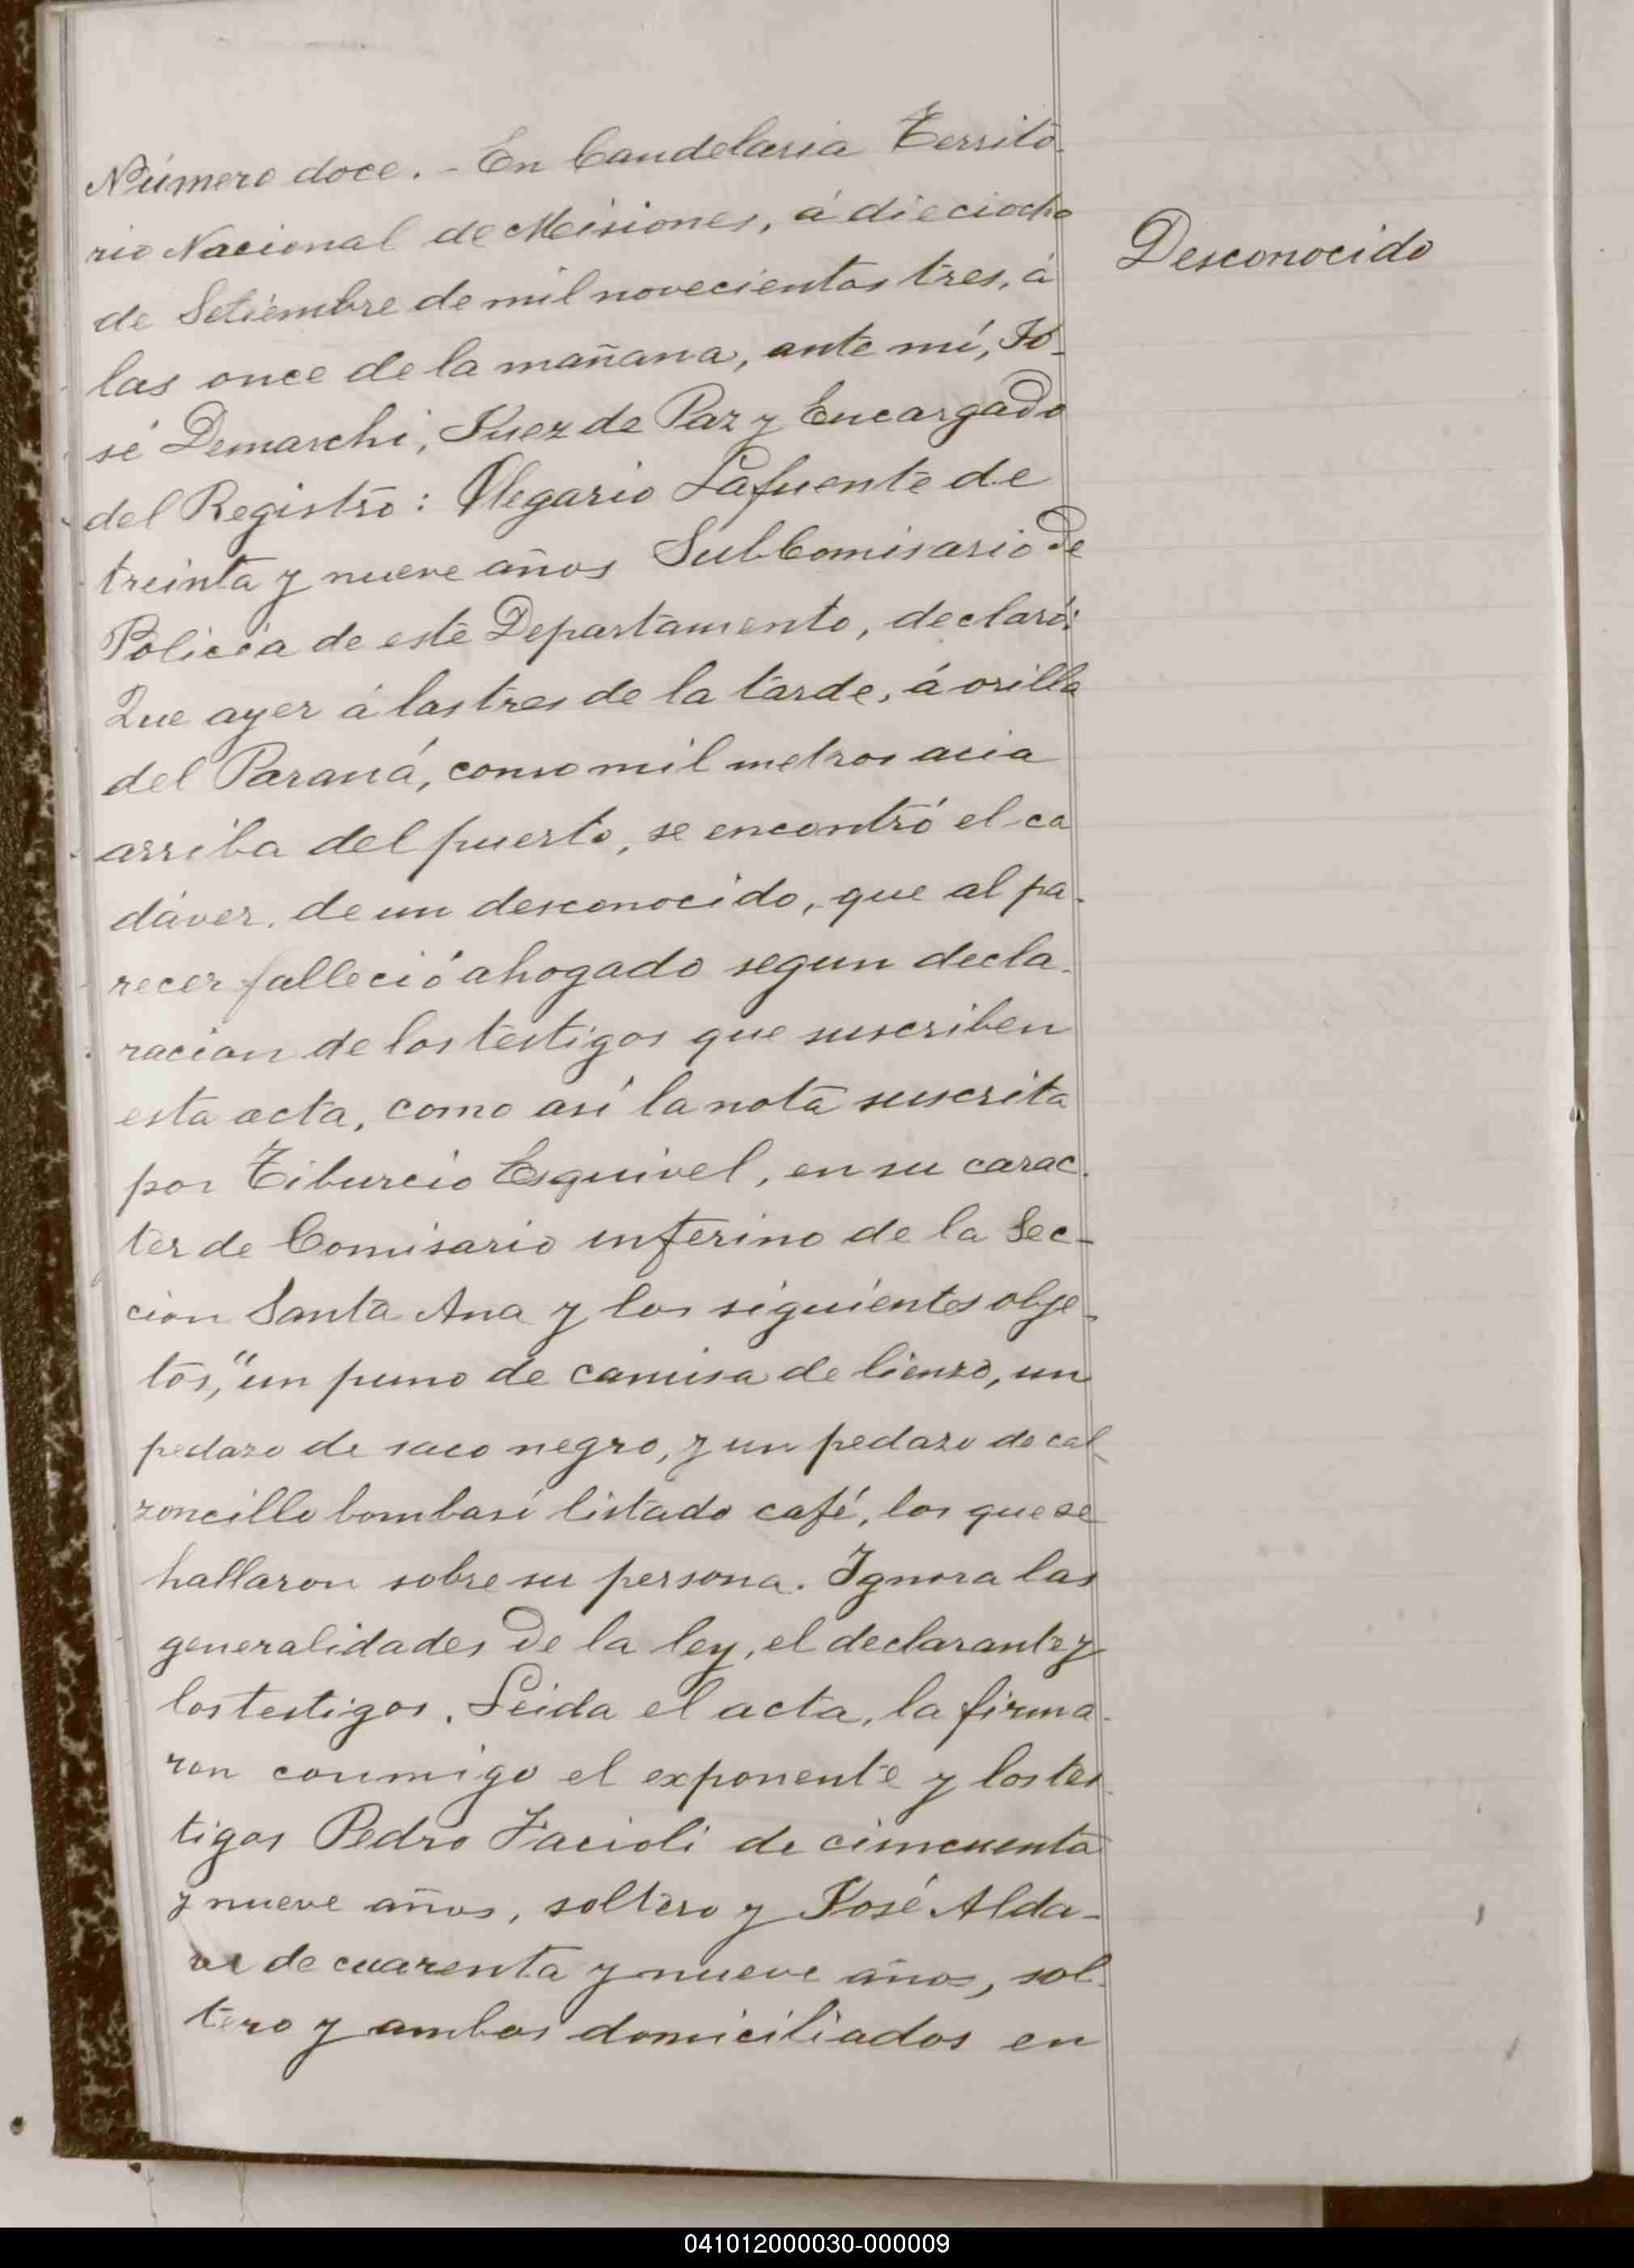 Número doce. - En Candelaria Territo-
rio Nacional de Misiones, á dieciocho
de Setiembre de mil novecientos tres, á
las once de la mañana, ante mí, Jo-
sé Demarchi, Juez de Paz y Encargado
del Registro: Olegario Lafuente de
treinta y nueve años SubComisario de
Policía de este Departamento, declaró:
Que ayer á las tres de la tarde, á orilla
del Paraná, como mil metros acia
arriba del puerto, se encontró el ca
dáver. de un desconocido, que al pa-
recer falleció ahogado segun decla-
racion de los testigos que suscriben
esta acta, como así la nota suscrita
por Tiburcio Esquivel, en su carac-
ter de Comisario interino de la Sec-
cion Santa Ana y los siguientes obje-
tos, "un puno de camisa de lienzo, un
pedazo de saco negro, y un pedazo de cal
zoncillo bombasí listado café, los que se
hallaron sobre su persona. Ignora las
generalidades de la ley, el declarante y
los testigos. Leida el acta, la firma-
ron conmigo el exponente y los tes-
tigos Pedro Facioli de cimcuenta
y nueve años, soltero y José Alda-
de cuarenta y nueve años, sol-
tero y ambos domiciliados en
Desconocido
041012000030-000009